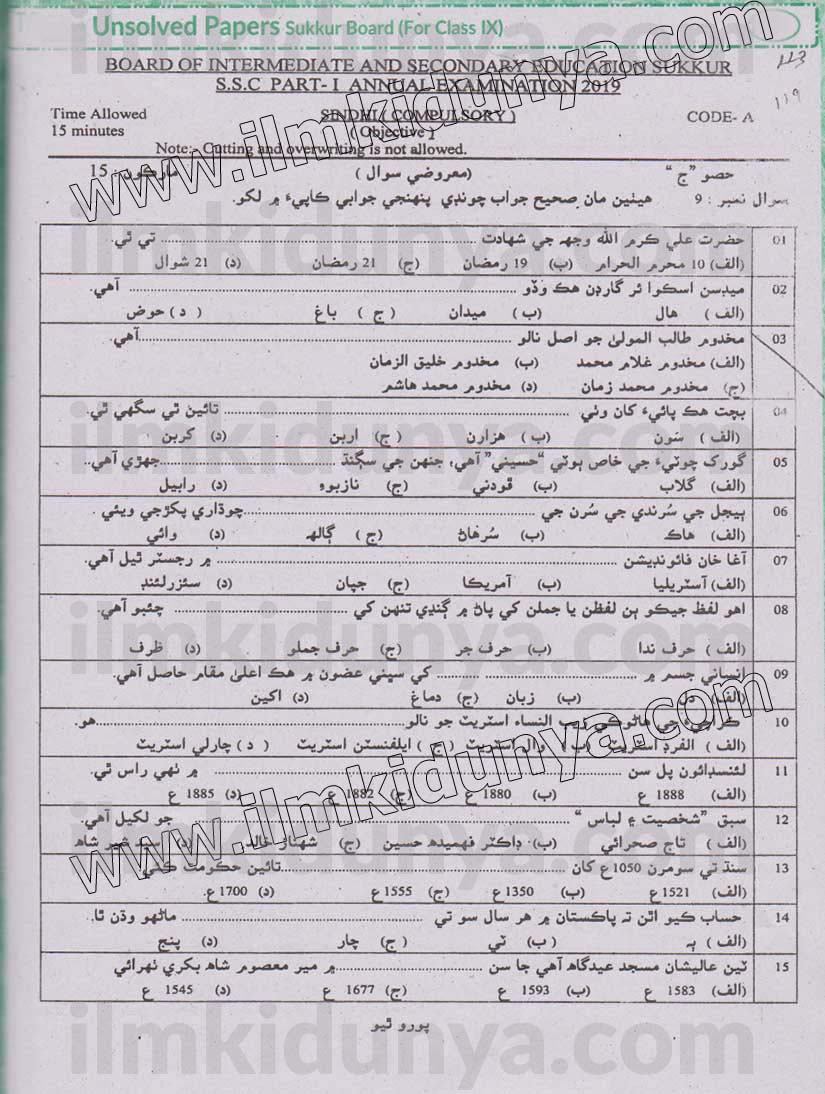 Unsolved Papers Sukkur Board (For Class IX)
113
BOARD OF INTERMEDIATE AND SECONDARY EDUCATION SUKKUR
S.S.C PART- I ANNUAL EXAMINATION 2019
119
Time Allowed SINDHI ( COMPULSORY ) CODE- A
15 minutes ( Objective )
Note:- Cutting and overwriting is not allowed.
حصو "ج" (معروضي سوال ) مارڪون - 15
سوال نمبر : 9 هيٺين مان صحيح جواب چونڊي پنهنجي جوابي ڪاپيءَ ۾ لکو.
01 حضرت علي ڪرم الله وجهہ جي شهادت ........ تي ٿي.
(الف) 10 محرم الحرام (ب) 19 رمضان (ج) 21 رمضان (د) 21 شوال
02 ميڊسن اسڪوائر گارڊن هڪ وڏو ........ آهي.
(الف) هال (ب) ميدان (ج) باغ (د) حوض
03 مخدوم طالب المولىٰ جو اصل نالو ........ آهي.
(الف) مخدوم غلام محمد (ب) مخدوم خليق الزمان
(ج) مخدوم محمد زمان (د) مخدوم محمد هاشم
04 بچت هڪ پائيءَ کان وٺي ........ تائين ٿي سگهي ٿي.
(الف) سَون (ب) هزارن (ج) اربن (د) کربن
05 گورک چوٽيءَ جي خاص ٻوٽي "حسيني" آهي، جنهن جي سڳنڌ ........ جهڙي آهي.
(الف) گلاب (ب) ڦودني (ج) نازبوءِ (د) رابيل
06 ٻيجل جي سُرندي جي سُرن جي ........ چوڌاري پکڙجي ويئي.
(الف) هاڪ (ب) سُرهاڻ (ج) ڳالهہ (د) وائي
07 آغا خان فائونڊيشن ........ ۾ رجسٽر ٿيل آهي.
(الف) آسٽريليا (ب) آمريڪا (ج) جپان (د) سئزرلئنڊ
08 اهو لفظ جيڪو ٻن لفظن يا جملن کي پاڻ ۾ ڳنڍي تنهن کي ........ چئبو آهي.
(الف) حرف ندا (ب) حرف جر (ج) حرف جملو (د) ظرف
09 انساني جسم ۾ ........ کي سڀني عضون ۾ هڪ اعليٰ مقام حاصل آهي.
(الف) دل (ب) زبان (ج) دماغ (د) اکين
10 ڪراچيءَ جي هاڻوڪي زيب النساء اسٽريٽ جو نالو ........ هو.
(الف) الفرڊ اسٽريٽ (ب) وال اسٽريٽ (ج) ايلفنسٽن اسٽريٽ (د) چارلي اسٽريٽ
11 لئنسڊائون پل سن ........ ۾ ٺهي راس ٿي.
(الف) 1888 ع (ب) 1880 ع (ج) 1882 ع (د) 1885 ع
12 سبق "شخصيت ۽ لباس" ........ جو لکيل آهي.
(الف) تاج صحرائي (ب) ڊاڪٽر فهميده حسين (ج) شهناز خالد (د) سيد شير شاهہ
13 سنڌ تي سومرن 1050ع کان ........ تائين حڪومت ڪئي.
(الف) 1521ع (ب) 1350ع (ج) 1555ع (د) 1700ع
14 حساب ڪيو اٿن تہ پاڪستان ۾ هر سال سو تي ........ ماڻهو وڌن ٿا.
(الف) ٻہ (ب) ٽي (ج) چار (د) پنج
15 ٽين عاليشان مسجد عيدگاهہ آهي جا سن ........ ۾ مير معصوم شاهہ بکري ٺهرائي
(الف) 1583 ع (ب) 1593 ع (ج) 1677 ع (د) 1545 ع
پورو ٿيو
www.ilmkidunya.com
www.ilmkidunya.com
ilmkidunya.com
ilmkidunya.com
ilmkidunya.com
ilmkidunya.com
ilmkidunya.com